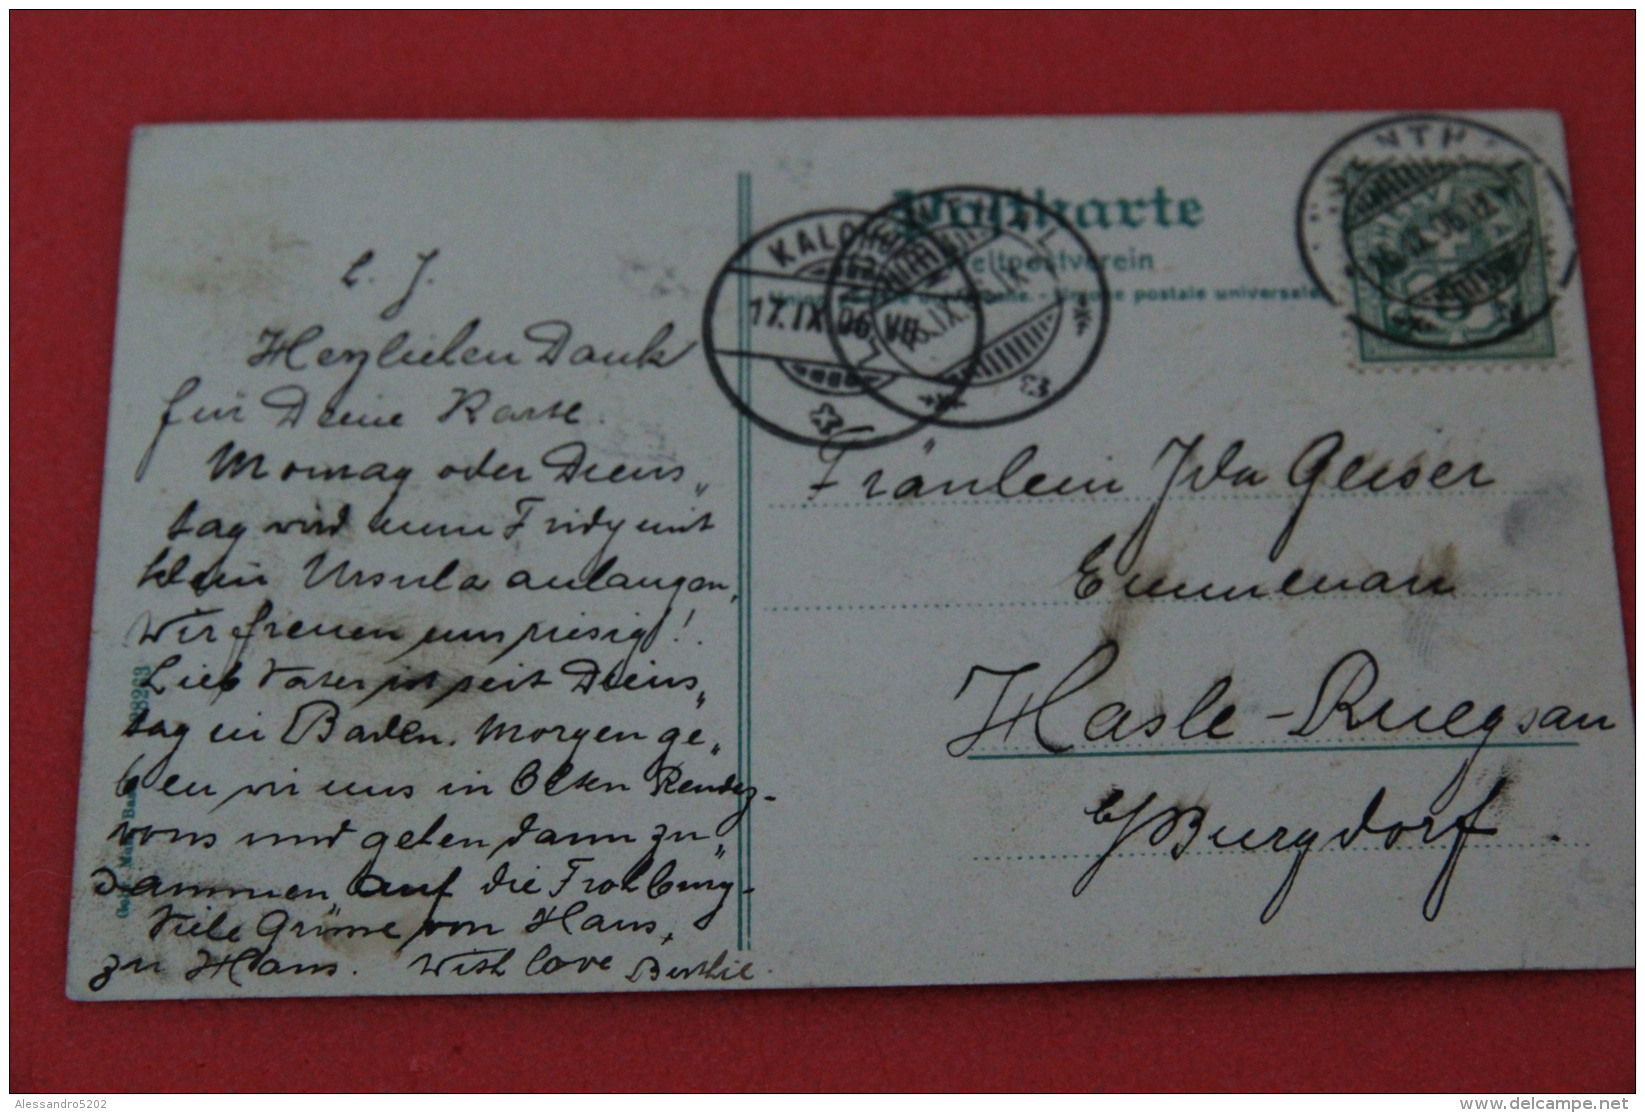 Postkarte
Weltpostverein
Union postale universelle
KALCH
17.IX.06.VII
16.IX.06.12
HELV
L. J.
Herzlichen Dank
für Deine Karte.
Montag oder Diens„
tag wird nun Fridy mit
klein Ursula anlangen,
Wir freuen uns riesig!
Lieb Vater ist seit Diens„
tag in Baden. Morgen ge„
ben wir uns in Olten Rendez-
vous und gehen dann zu„
sammen auf die Frohburg-
Viele Grüsse von Haus
zu Haus. With love Berthie.
Fräulein Ida Geiser
Emmenau
Hasle-Ruegsau
b/Burgdorf
28263
Alessandro5202
www.delcampe.net